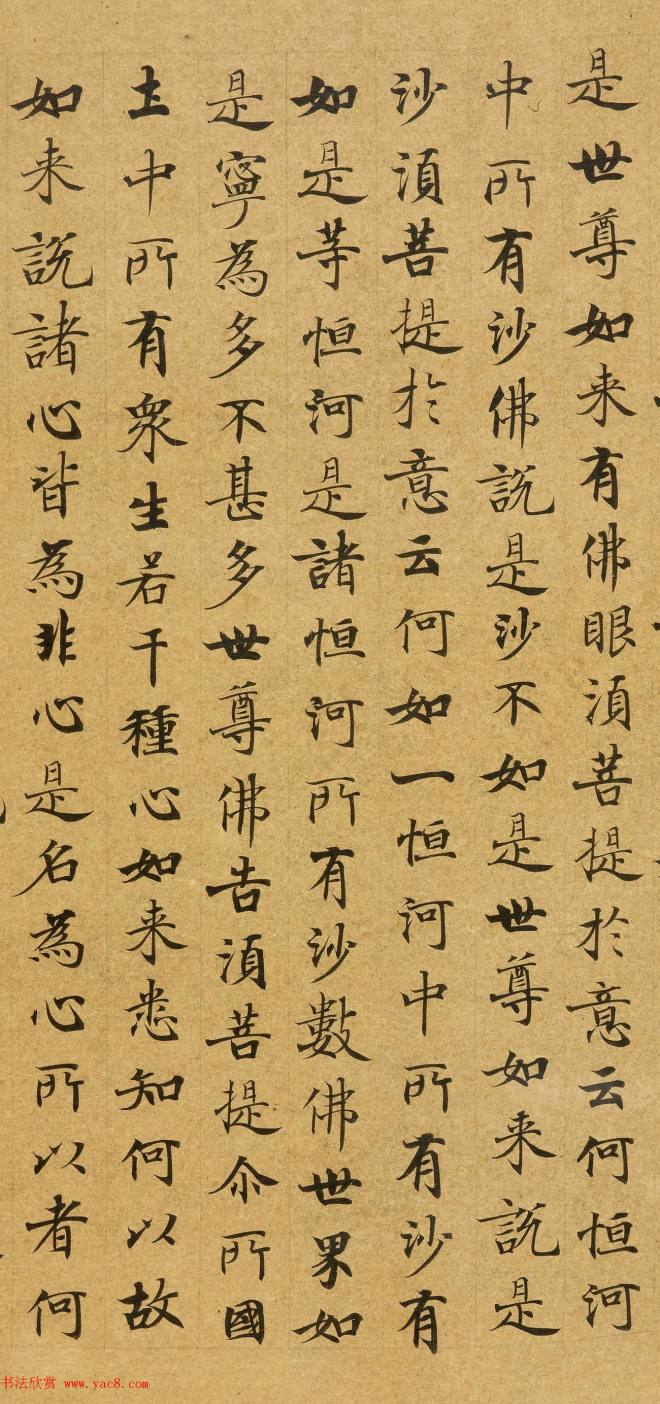 是世尊如来有佛眼湏菩提於意云何恒河
中所有沙佛說是沙不如是世尊如来說是
沙湏菩提於意云何如一恒河中所有沙有
如是等恒河是諸恒河所有沙數佛世界如
是寧為多不甚多世尊佛告湏菩提尒所國
土中所有衆生若干種心如来悉知何以故
如来說諸心皆為非心是名為心所以者何
书法欣赏 www.yac8.com